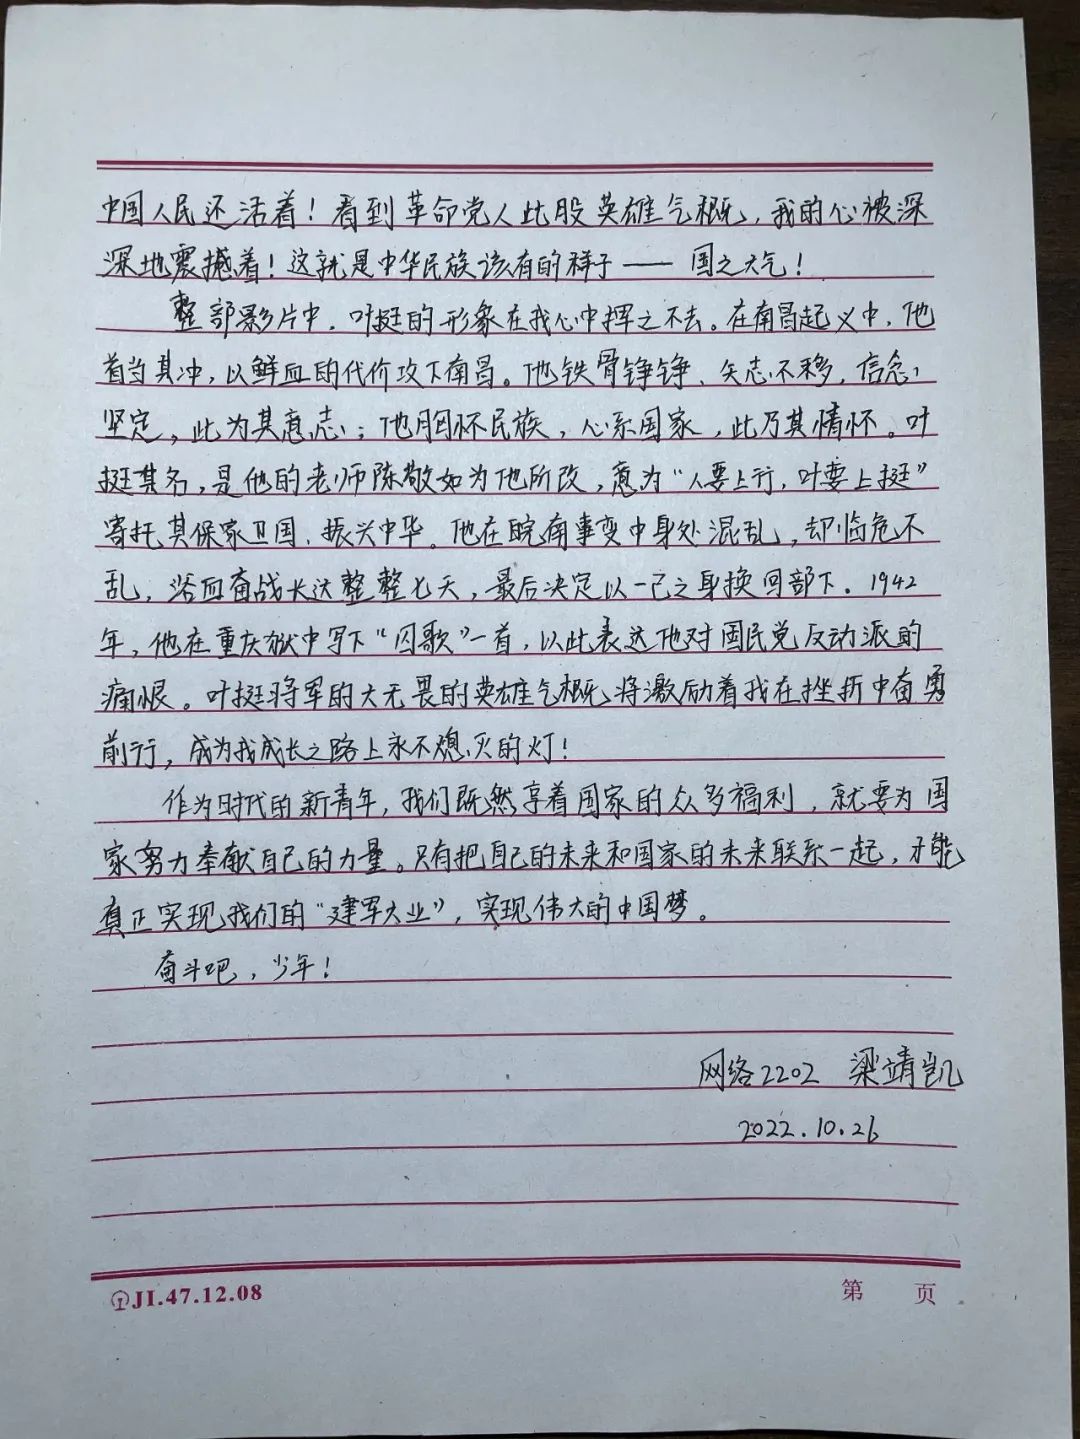 中国人民还活着！看到革命党人此股英雄气概，我的心被深
深地震撼着！这就是中华民族该有的样子——国之大气！
整部影片中，叶挺的形象在我心中挥之不去。在南昌起义中，他
首当其冲，以鲜血的代价攻下南昌。他铁骨铮铮、矢志不移，信念
坚定，此为其意志；他胸怀民族，心系国家，此乃其情怀。叶
挺其名，是他的老师陈敬如为他所改，意为“人要上行，叶要上挺”
寄托其保家卫国、振兴中华。他在皖南事变中身处混乱，却临危不
乱，浴血奋战长达整整七天，最后决定以一己之身换回部下。1942
年，他在重庆狱中写下“囚歌”一首，以此表达他对国民党反动派的
痛恨。叶挺将军的大无畏的英雄气概将激励着我在挫折中奋勇
前行，成为我成长之路上永不熄灭的灯！
作为时代的新青年，我们既然享着国家的众多福利，就要为国
家努力奉献自己的力量。只有把自己的未来和国家的未来联系一起，才能
真正实现我们的“建军大业”，实现伟大的中国梦。
奋斗吧，少年！
网络2202 梁靖凯
2022.10.26
JI.47.12.08
第 页